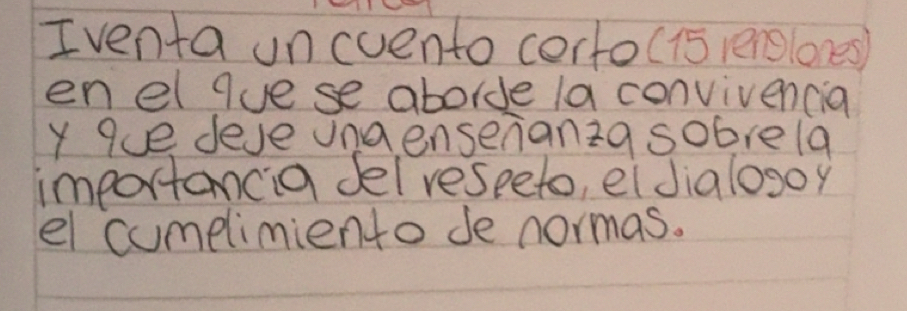 Iventa un cuento corto (15 renglones)
en el que se aborde la convivencia
y que deje una enseñanza sobre la
importancia del respeto, el dialogo y
el cumplimiento de normas.